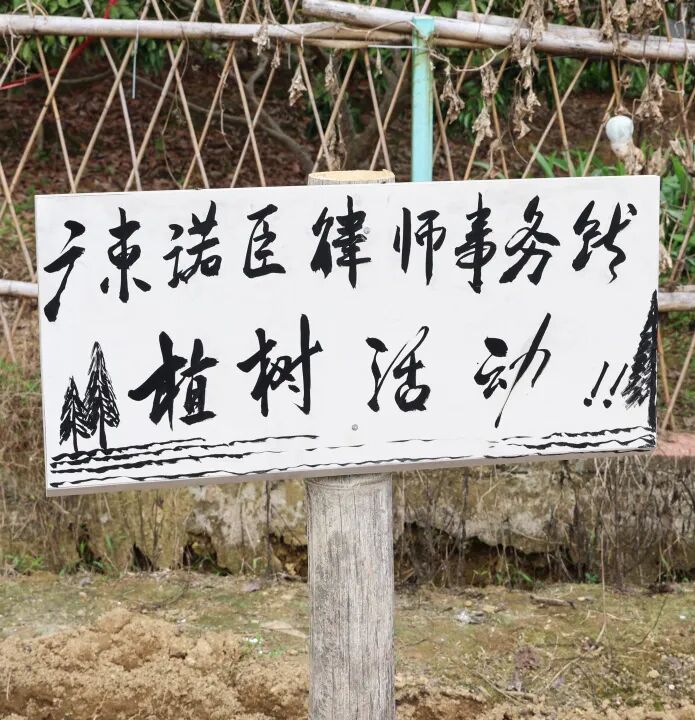 广東诺臣律师事务所
植树活动!!